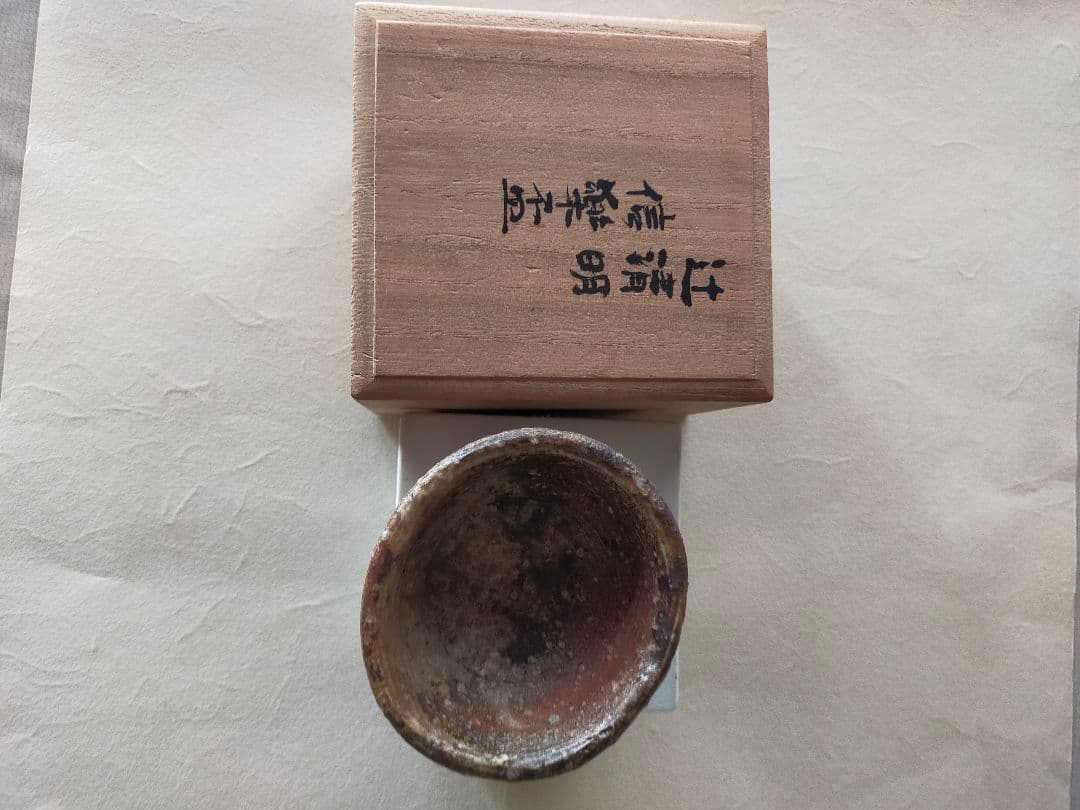 辻清明
信樂盃